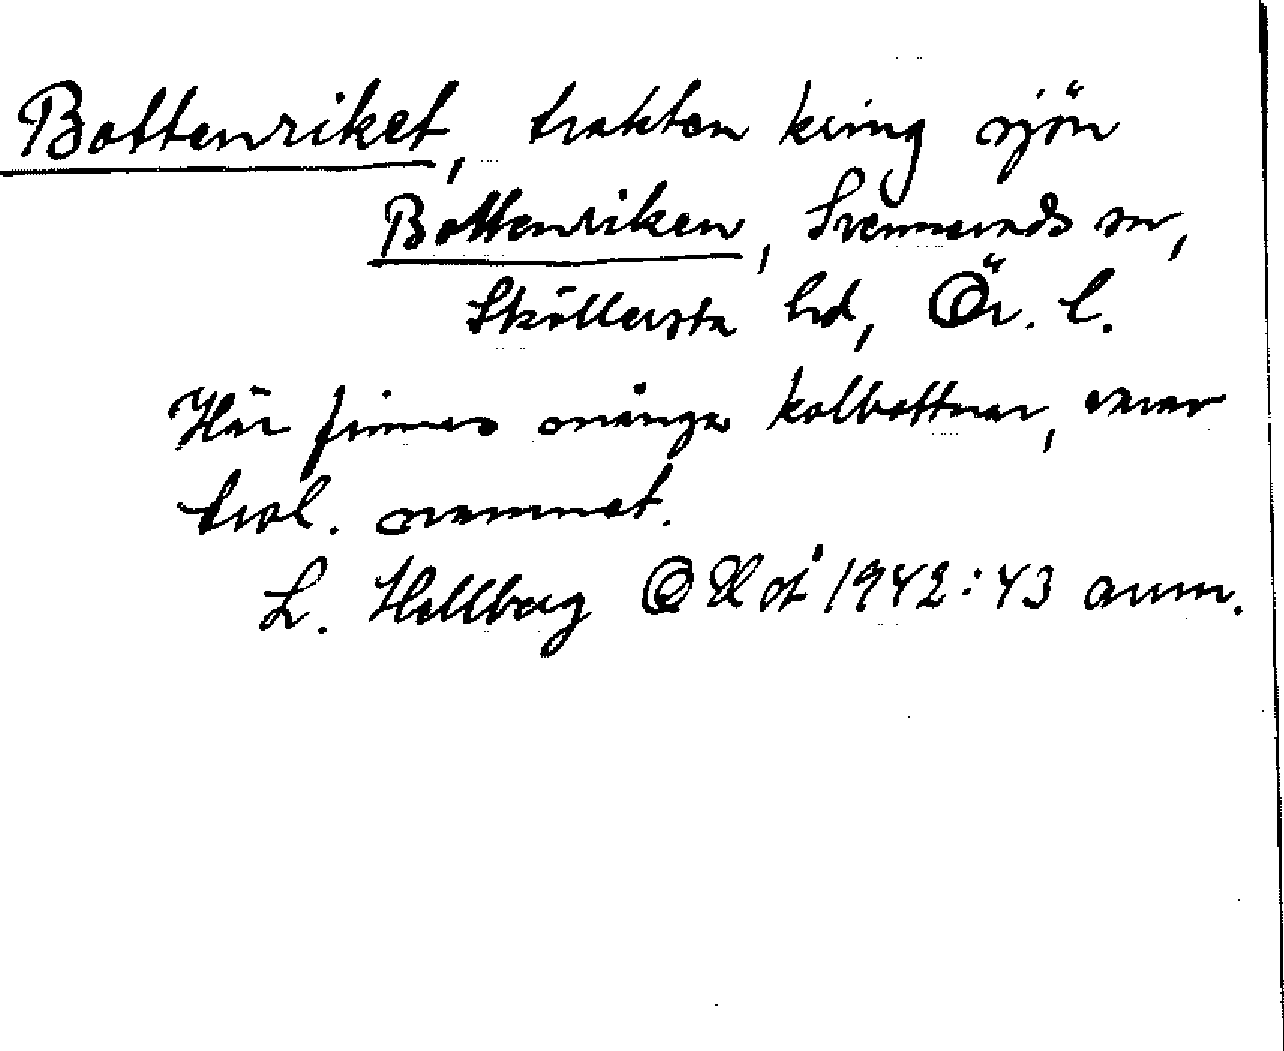 Bottenriket, trakten kring sjön
Bottenriken, Svennevads sn,
Sköllersta hd, Ör. l.
Här finnes många kolbottnar, varav
trol. namnet.
L. Hallberg 1942:43 anm.